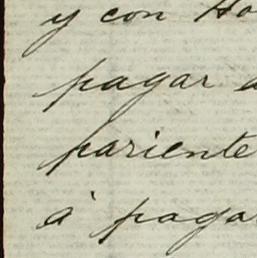 y con Ho
pagar a
pariente
á pagar